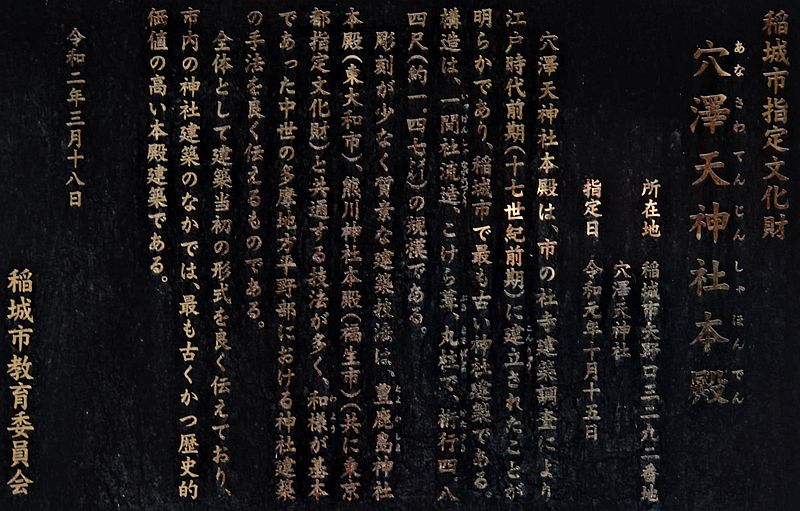 稲城市指定文化財
あなさわてんじんしゃほんでん
穴澤天神社本殿
所在地　稲城市矢野口三二九二番地
穴澤天神社
指定日　令和元年十月十五日
穴澤天神社本殿は、市の社寺建築調査により
江戸時代前期(十七世紀前期)に建立されたことが
明らかであり、稲城市で最も古い神社建築である。
構造は、一間社流造、こけら葺、丸柱で、桁行四.八
四尺(約一.四七㍍)の規模である。
彫刻が少なく質素な建築技法は、豊鹿島神社
本殿(東大和市)、熊川神社本殿(福生市)(共に東京
都指定文化財)と共通する技法が多く、和様が基本
であった中世の多摩地方平野部における神社建築
の手法を良く伝えるものである。
全体として建築当初の形式を良く伝えており、
市内の神社建築のなかでは、最も古くかつ歴史的
価値の高い本殿建築である。
令和二年三月十八日
稲城市教育委員会